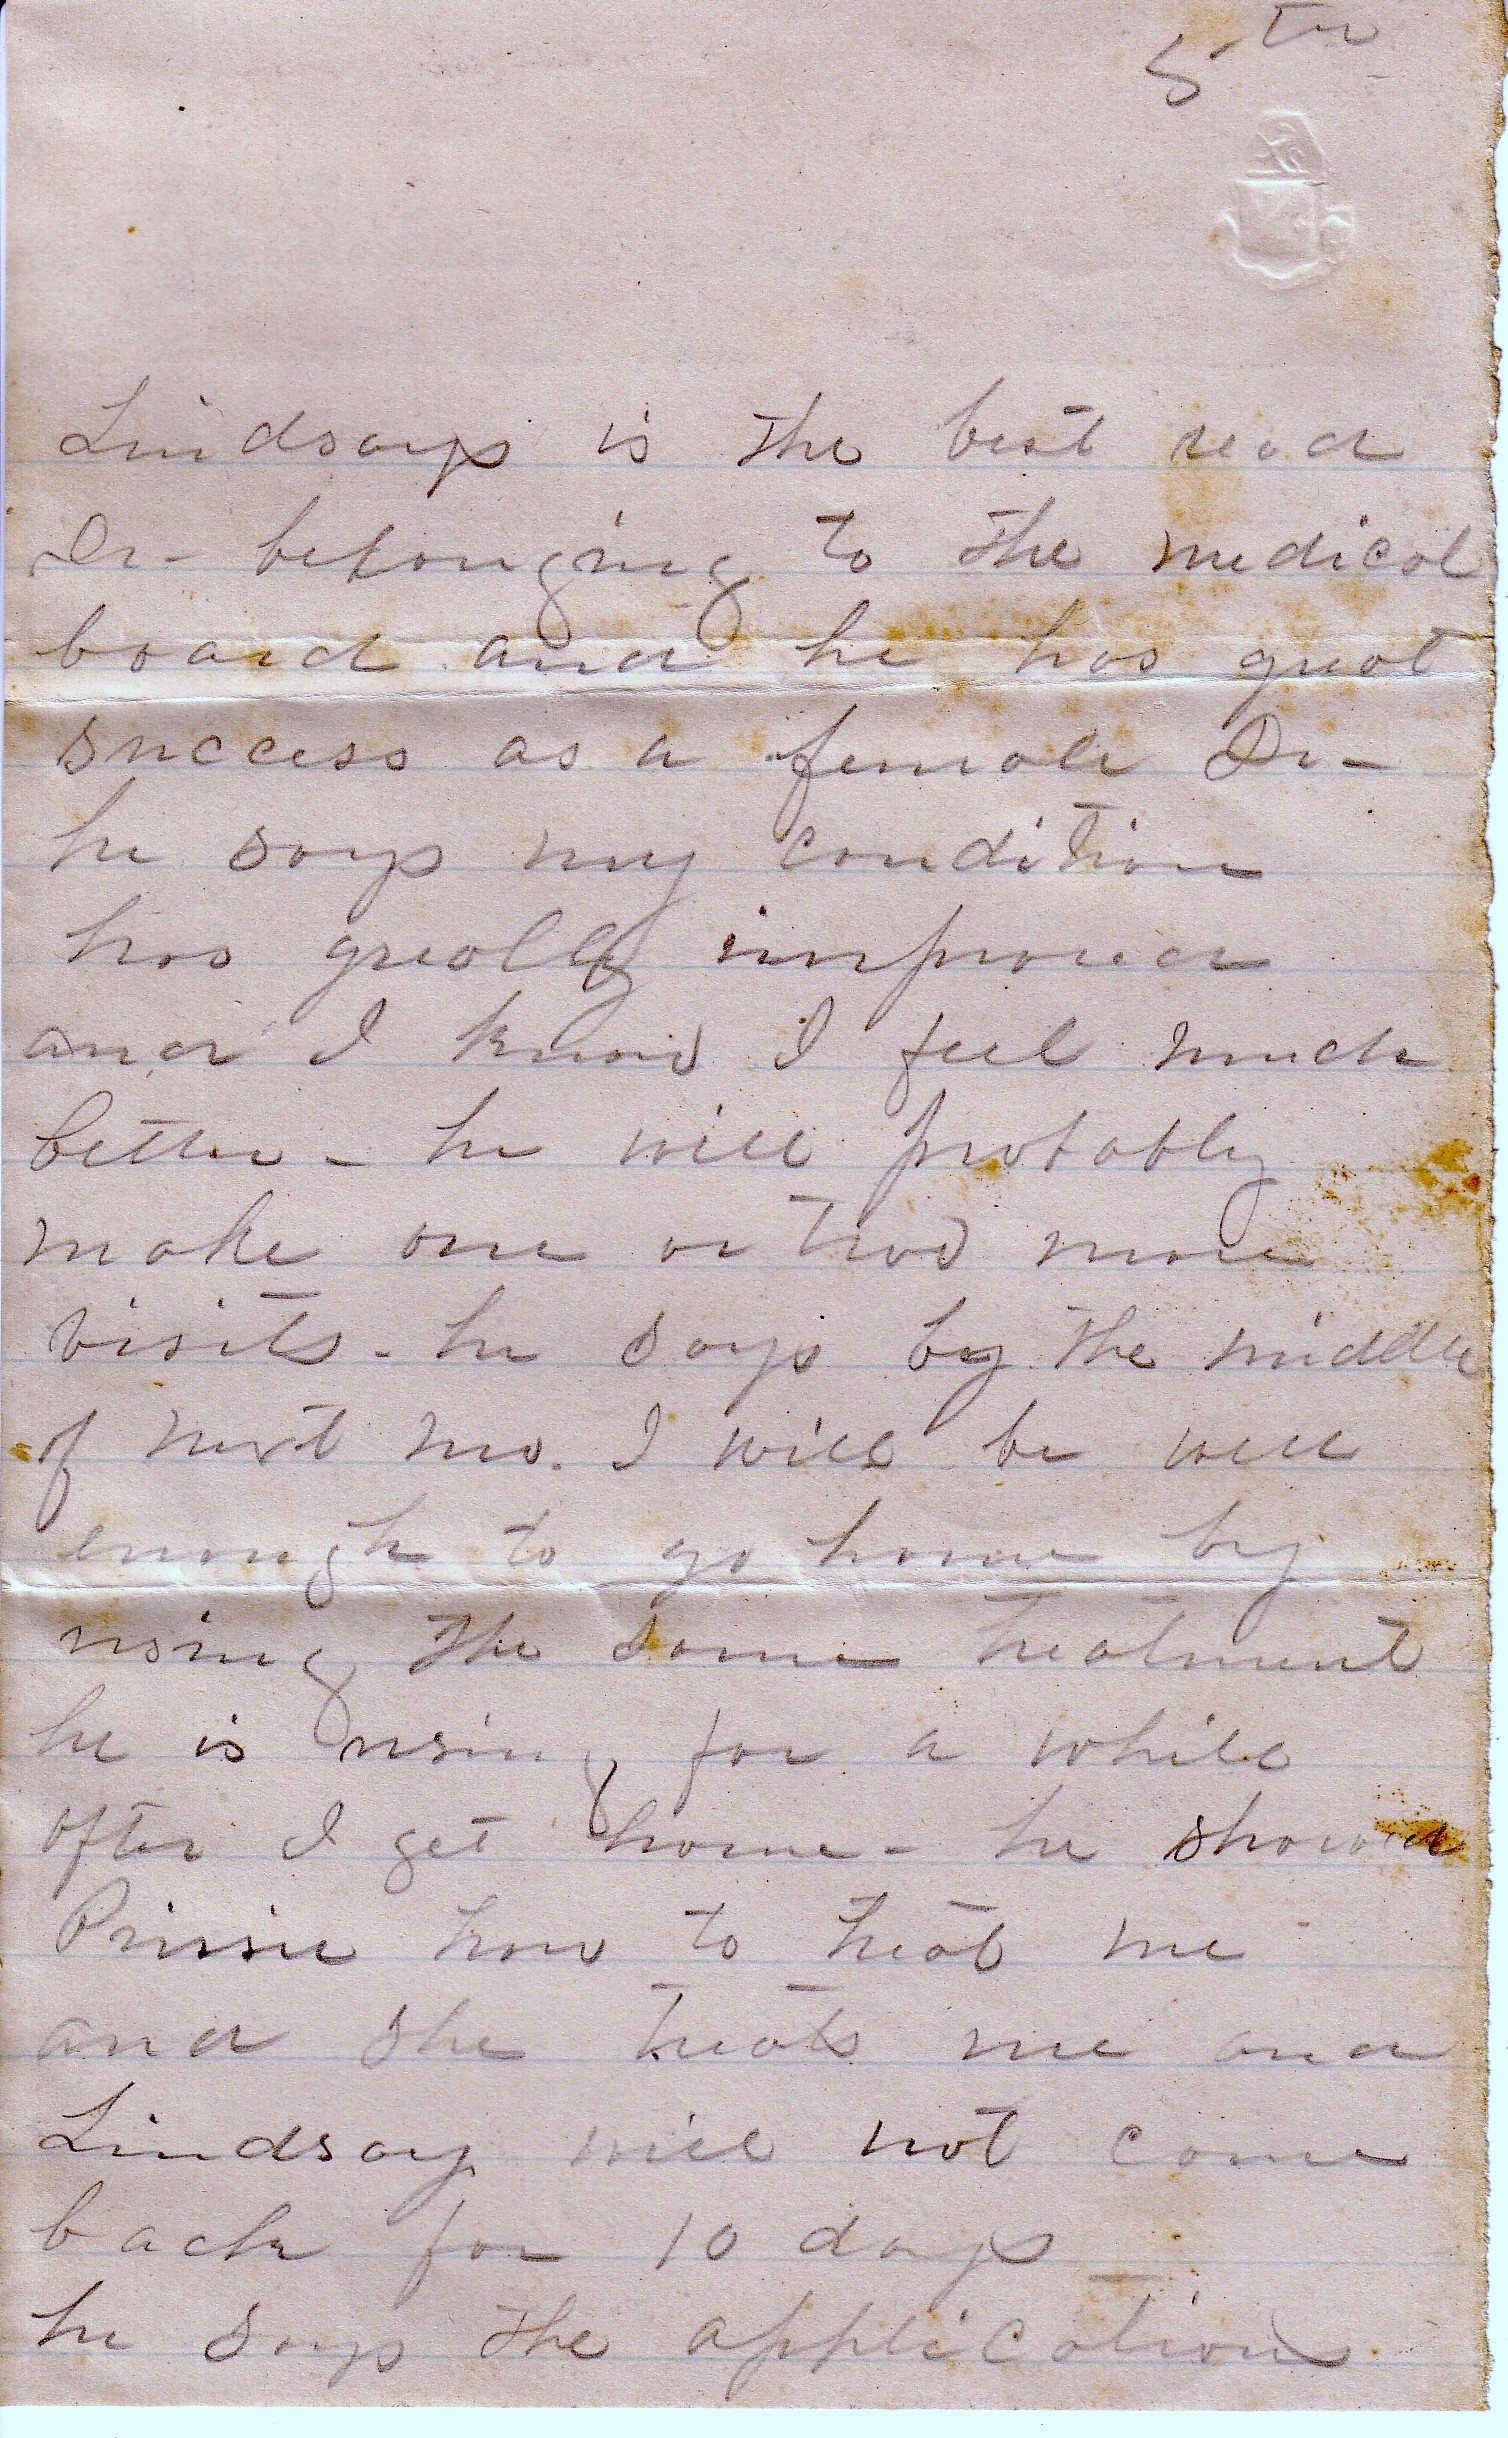 5th
Lindsays is the best read
Dr- belonging to the medical
board and he has great
success as a female Dr-
he says my condition
has greatly improved
and I know I feel much
better - he will probably
make one or two more
visits - he says by the middle
of next mo. I will be well
enough to go home by
using the same treatment
he is using for a while
after I get home - he showed
Prissie how to treat me
and she treats me and
Lindsay will not come
back for 10 days
he says the application